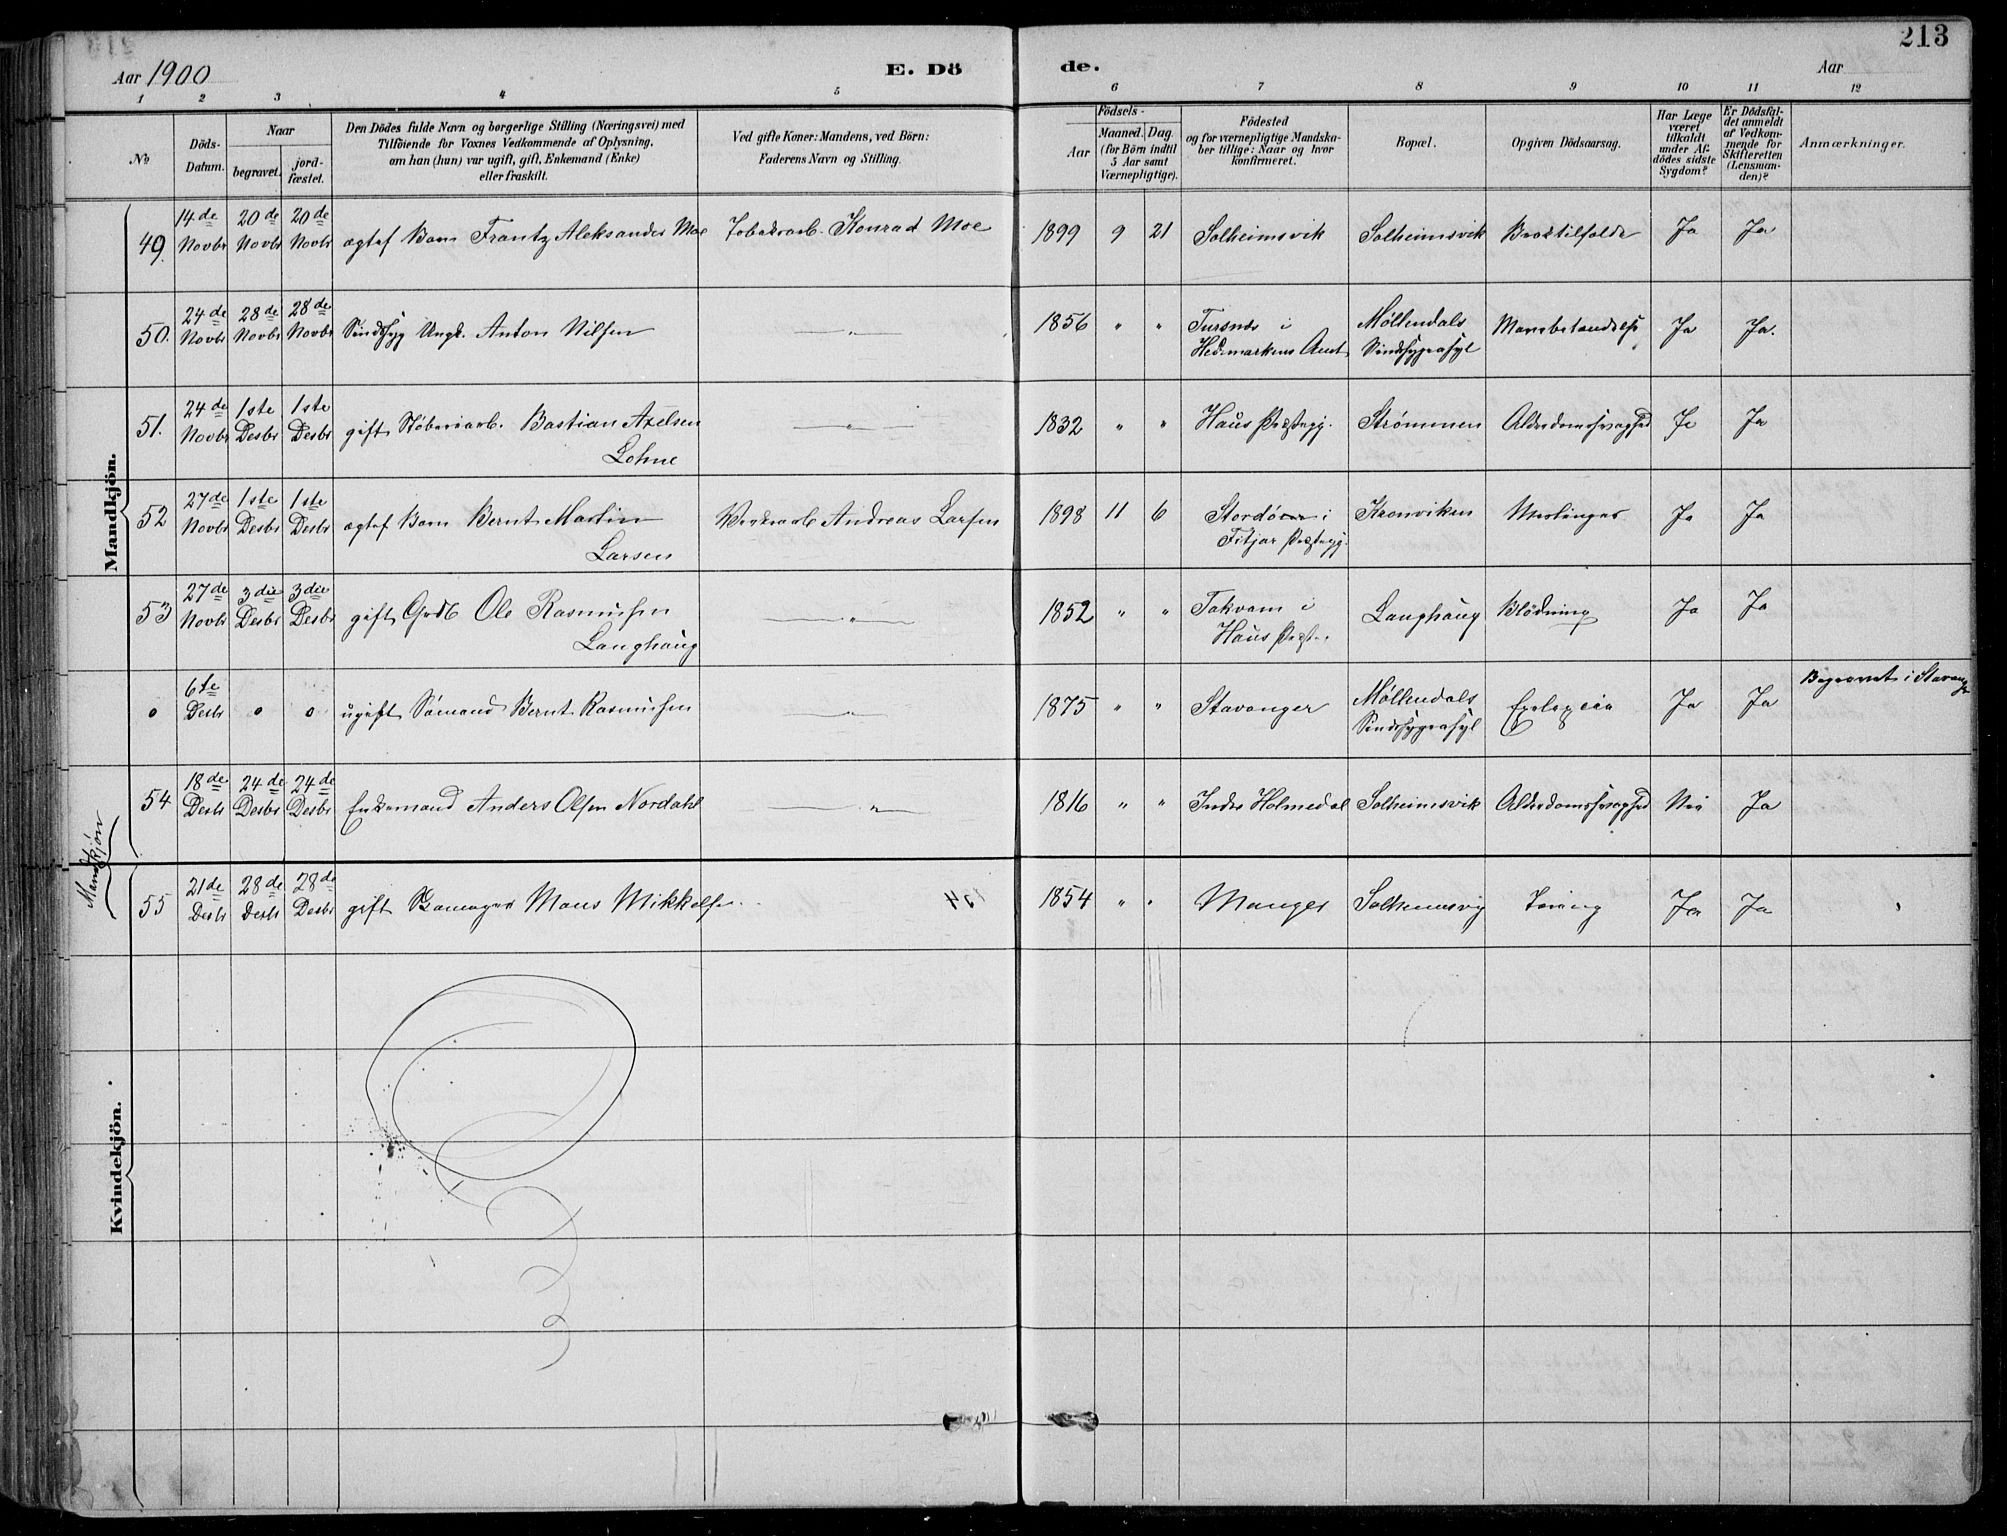 213
Aar 1900
E. Dö
de.
Aar
1 2 3 4 5 6 7 8 9 10 11 12
No
Döds-Datum.
Naar
begravet.
jord-fæstet.
Den Dödes fulde Navn og borgerlige Stilling (Næringsvei) med
Tilföiende for Voxnes Vedkommende af Oplysning,
om han (hun) var ugift, gift, Enkemand (Enke)
eller fraskilt.
Ved gifte Koner: Mandens, ved Börn:
Faderens Navn og Stilling.
Födsels-
Aar
Maaned. Dag.
(for Börn indtil
5 Aar samt
Værnepligtige).
Födested
og for værnepligtige Mandska-
ber tillige: Naar og hvor
konfirmeret.
Bopæl.
Opgiven Dödsaarsag.
Har Læge
været
tilkaldt
under Af-
dödes sidste
Sygdom?
Er Dödsfal-
det anmeldt
af Vedkom-
mende for
Skifteretten
(Lensman-
den)?
Anmærkninger.
Mandkjön.
49. 14de Novbr 20de Novbr 20de Novbr ægtef Barn Frantz Aleksander Moe Konrad Moe 1899 9 21 Solheimsvik Solheimsvik Ja Ja
50. 24de Novbr 28de Novbr 28de Novbr Sindssyg Ungk. Anton Nilsen " 1856 " " i Hedemarkens Amt Møllendals Sindssygeasyl Ja Ja.
51. 24de Novbr 1ste Desbr 1ste Desbr gift Støberiarb. Bastian Axelsen " 1832 " " Haus Præstegj. Strømmen Alderdomssvaghed Ja Ja
Lohne
52 27de Novbr 1ste Desbr 1ste Desbr ægtef Barn Bernt Martin Andreas Larsen 1898 11 6 Stordøen i Fitjar Præstegj. Kronviken Meslinger Ja Ja
Larsen
53 27de Novbr 3die Desbr 3die Desbr gift Grdb Ole Rasmussen " 1852 " " Takvam i Haus Præst. Langhaug Blödning Ja Ja
Langhaug
o 6te Desbr o o ugift Sømand Bernt Rasmussen " 1875 " " Stavanger Møllendals Sindssygeasyl Ja Ja Begravet i Stavanger
54 18de Desbr 24de Desbr 24de Desbr Enkemand Anders Olsen Nordahl " 1816 " " Indre Holmedal Solheimsvik Alderdomssvaghed Nei Ja
Mandkjön
55 21de Desbr 28de Desbr 28de Desbr gift Mons Mikkelsen 1854 " " Manger Solheimsvig Tæring Ja Ja
Kvindekjön.